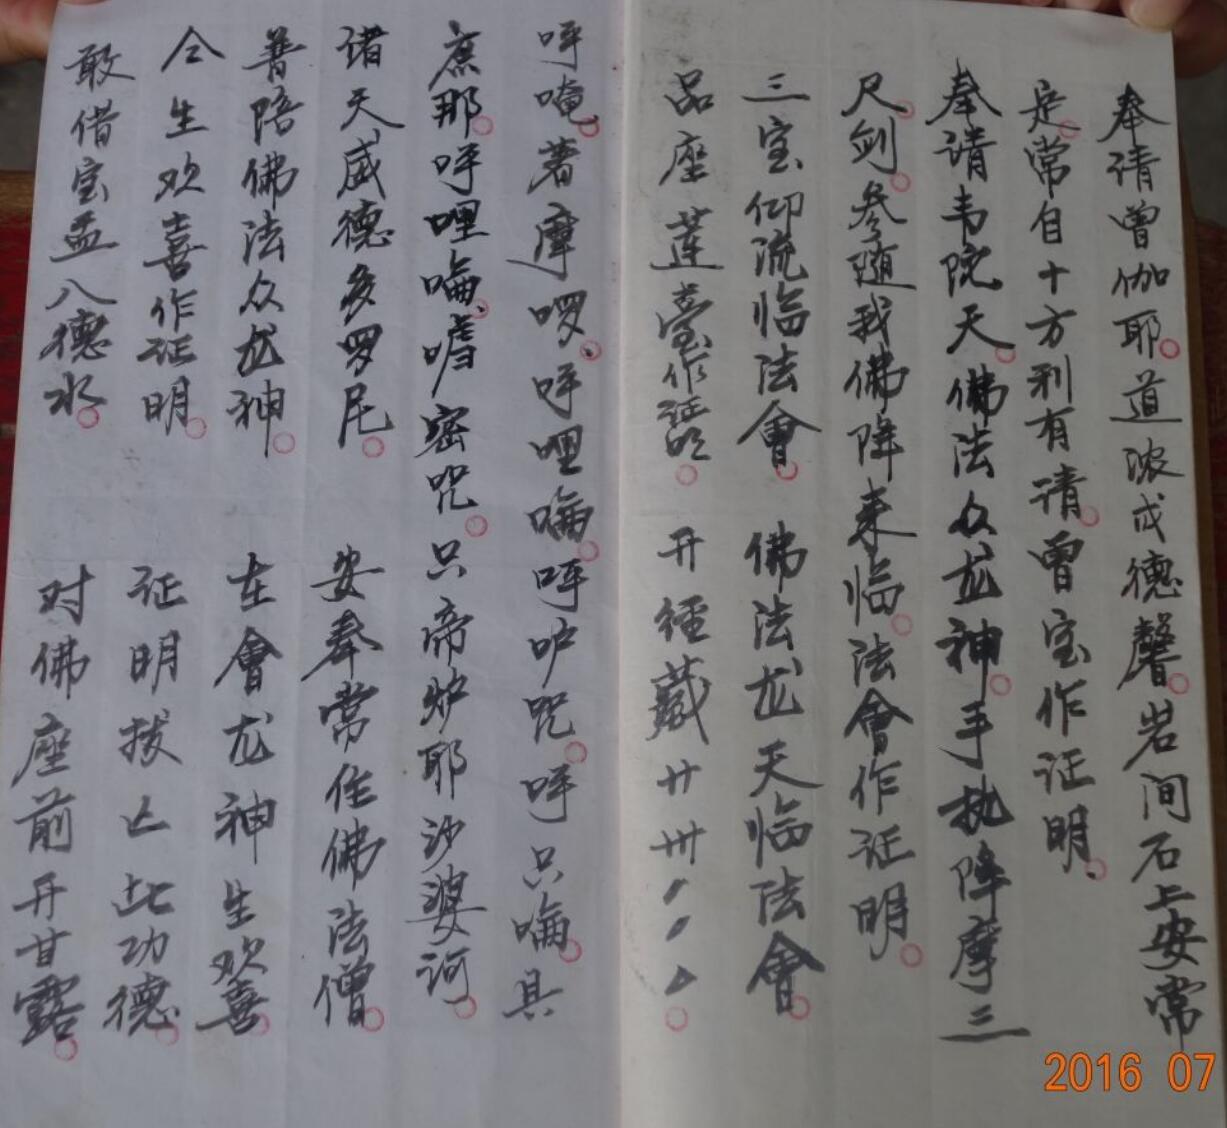 奉请曾伽耶道浓成德馨岩间石上安常
定常自十方利有请曾宝作证明
奉请韦院天佛法众龙神手执降摩三
尺剑参随我佛降来临法會作证明
三宝仰流临法會 佛法龙天临法會
品座莲臺作证明 开經藏
呼唵著摩啰呼哩㗍呼咒呼只㗍具
庶那呼哩㗍嚤密咒只帝炉耶沙婆诃
诸天威德多罗尼 安奉常住佛法僧
普陪佛法众龙神 在會龙神生欢喜
仝生欢喜作证明 证明拔亡此功德
敢借宝盂八德水 对佛座前开甘露
2016 07